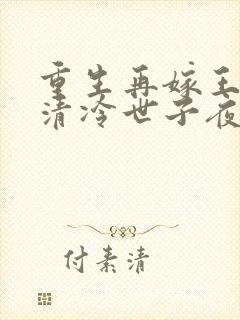 重生再嫁王
清冷世子夜
付素清